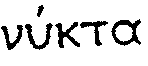 νύκτα